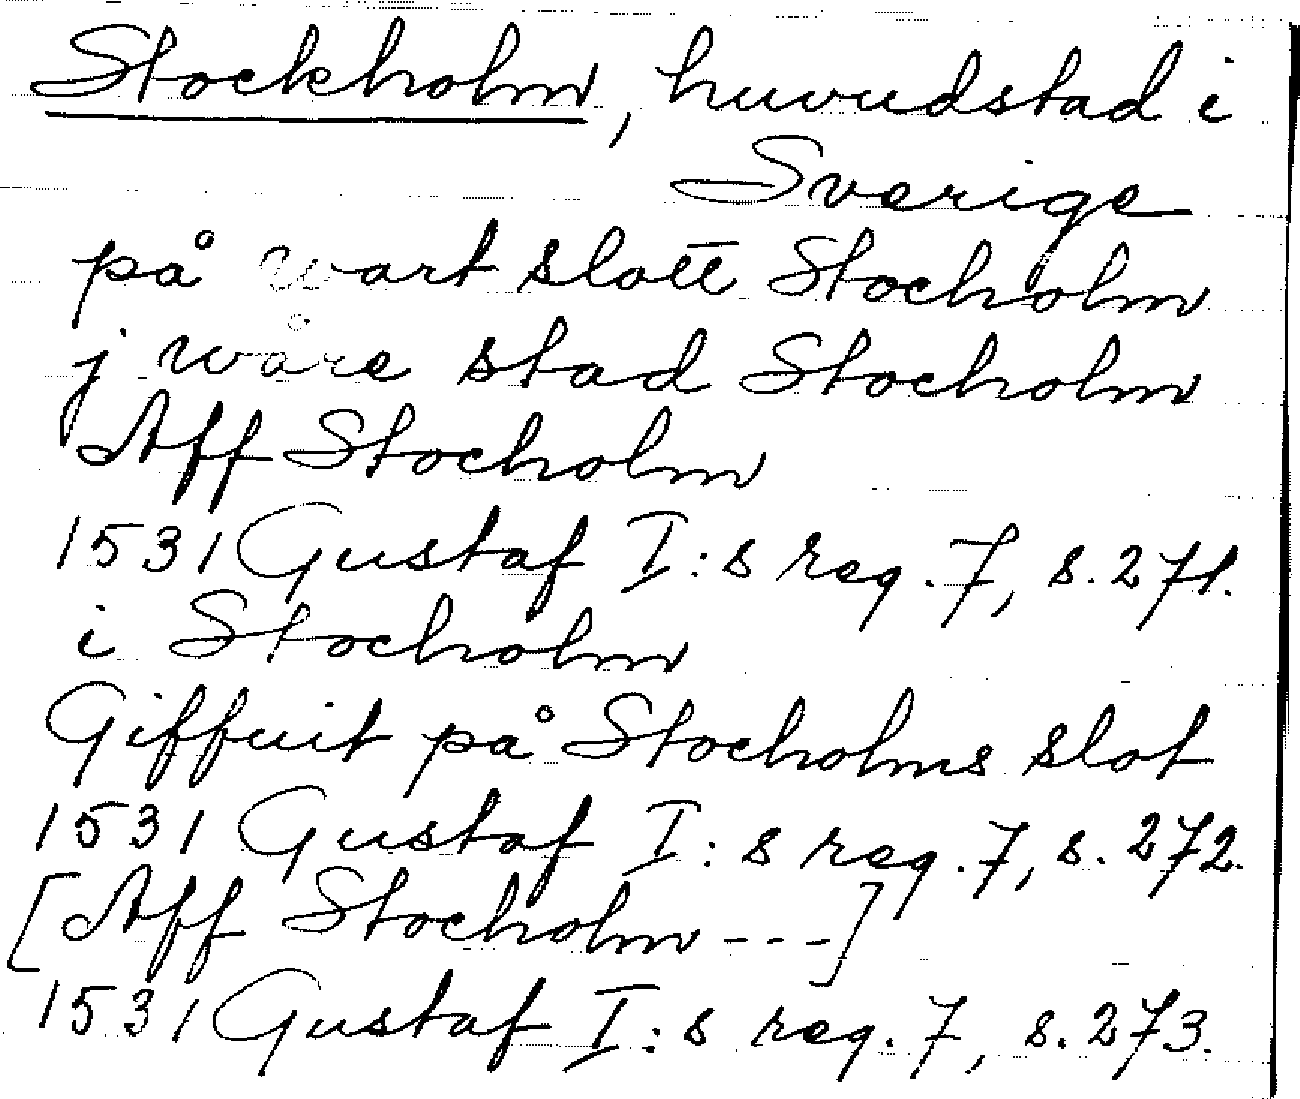 Stockholm, huvudstad i
Sverige
på wart slott Stocholm
j wåre stad Stocholm
Aff Stocholm
1531 Gustaf I:s reg. 7, s. 271.
i Stocholm
Giffuit på Stocholms slot
1531 Gustaf I:s reg. 7, s. 272.
[Aff Stocholm ---]
1531 Gustaf I:s reg. 7, s. 273.